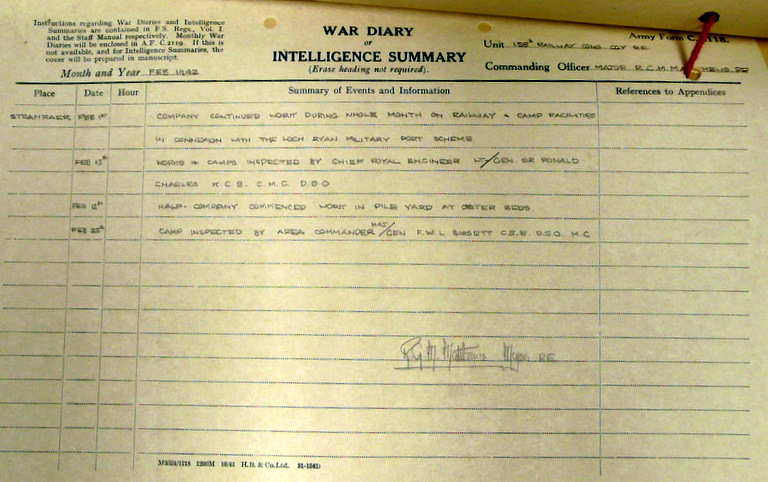 Instructions regarding War Diaries and Intelligence
Summaries are contained in F.S. Regs., Vol. I.
and the Staff Manual respectively. Monthly War
Diaries will be enclosed in A.F. C.2119. If this is
not available, and for Intelligence Summaries, the
cover will be prepared in manuscript.
Month and Year FEB 1942
WAR DIARY
or
INTELLIGENCE SUMMARY
(Erase heading not required).
Army Form C. 118.
Unit 158th RAILWAY CONS. COY R.E.
Commanding Officer MAJOR R.C.M. RE
Place Date Hour Summary of Events and Information References to Appendices
STRANRAER FEB 1st COMPANY CONTINUED WORK DURING WHOLE MONTH ON RAILWAY & CAMP FACILITIES
IN CONNEXION WITH THE LOCH RYAN MILITARY PORT SCHEME
FEB 13th WORKS & CAMPS INSPECTED BY CHIEF ROYAL ENGINEER LT/GEN SIR RONALD
CHARLES K.C.B. C.M.G. D.S.O
FEB HALF-COMPANY COMMENCED WORK IN PILE YARD AT OYSTER BEDS
FEB 25th CAMP INSPECTED BY AREA COMMANDER MAJ/GEN F.W.L. BISSETT C.B.E. D.S.O. M.C
Major RE
M3524/1218 1200M 10/41 H.B. & Co.Ltd. 51-1541)